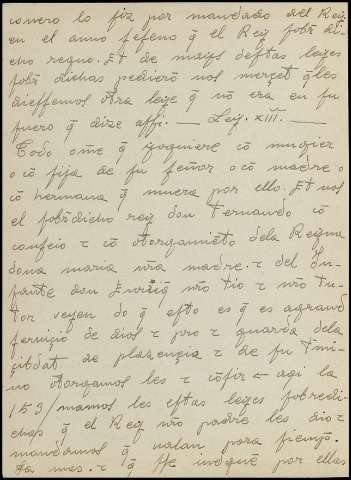 convero lo fiz por mandado del Rey
en el anno seseno q̄ el Rey sobr̄ di-
cho regno. Et de mais destas leyes
sobr̄ dichas pedierō nos merçet q̄ les
diessemos otra leye q̄ nō era en su
fuero q̄ dize assi. — Ley. XIII. —
Todo ome q̄ yoguiere cō mugier
o cō fija de su señor o cō madre o
cō hermana q̄ muera por ello. Et nos
el sobr̄dicho rey don Fernando cō
conseio τ cō otorgamiēto dela Reyna
dona maria nr̄a madre. τ del In-
fante don Enriq̄ nr̄o tio τ nr̄o tu-
tor veyendo q̄ esto es q̄ es a grand
serviçio de dios τ pro τ guarda dela
çibdat de plazençia τ de su tmi-
no otorgamos les τ cōfir← aqi la
153/ mamos les estas leyes sobredi-
chas q̄ el Rey nr̄o padre les dio τ
mandamos q̄ valan para siempr̄.
Ja mas. τ q̄ se iudguē por ellas